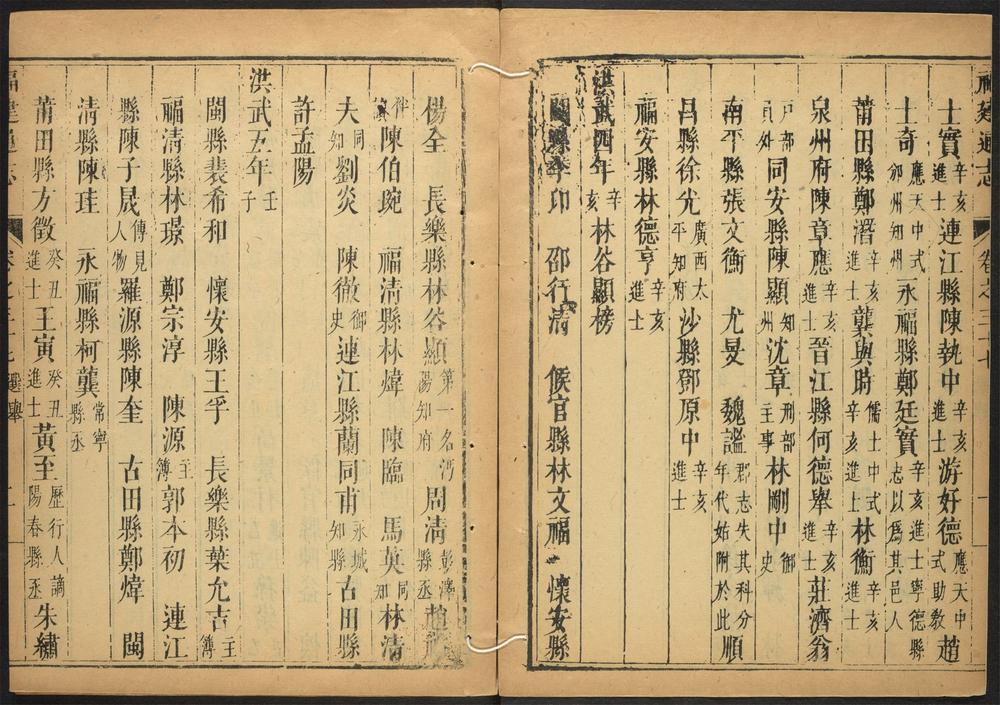 福建通志 卷之三十七
士實辛亥進士連江縣陳執中辛亥進士游好德應天中式助教趙
士奇應天中式邠州知州永福縣鄭廷實辛亥進士寧德縣志以爲其邑人
莆田縣鄭潛辛亥進士龔與時儒士中式辛亥進士林衡辛亥進士
泉州府陳章應辛亥進士晉江縣何德舉辛亥進士莊濟翁
戶部員外同安縣陳顯知州沈章刑部主事林剛中御史
南平縣張文衡 尤旻 魏謐郡志失其科分年代始附於此順
昌縣徐光廣西太平知府沙縣鄧原中辛亥進士
福安縣林德亨辛亥進士
洪武四年辛亥林谷顯榜
閩縣李卬 邵行清 候官縣林文福 懷安縣
楊全 長樂縣林谷顯第一名沔陽知府周清彭澤縣丞趙
陳伯畹 福清縣林煒 陳臨 馬英同知林清
夫同知劉炎 陳徹御史連江縣蘭同甫永城知縣古田縣
許孟陽
洪武五年壬子
閩縣裴希和 懷安縣王孚 長樂縣葉允吉主簿
福清縣林璟 鄭宗淳 陳源主簿郭本初 連江
縣陳子晟傳見人物羅源縣陳奎 古田縣鄭煒 閩
清縣陳珪 永福縣柯龔常寧縣丞
莆田縣方徵癸丑進士王寅癸丑進士黃至歷行人謫陽春縣丞朱繡
福建通志 卷之三十七 選舉